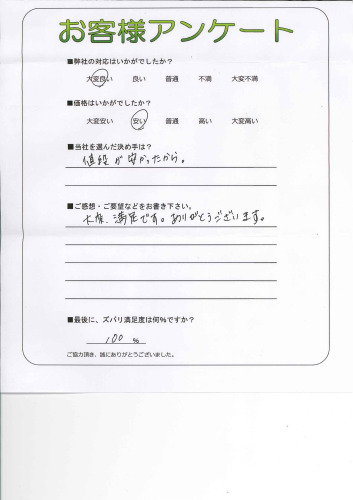 お客様アンケート
■弊社の対応はいかがでしたか？
大変良い 良い 普通 不満 大変不満
■価格はいかがでしたか？
大変安い 安い 普通 高い 大変高い
■当社を選んだ決め手は？
値段が安かったから。
■ご感想・ご要望などをお書き下さい。
大変、満足です。ありがとうございます。
■最後に、ズバリ満足度は何%ですか？
100 %
ご協力頂き、誠にありがとうございました。